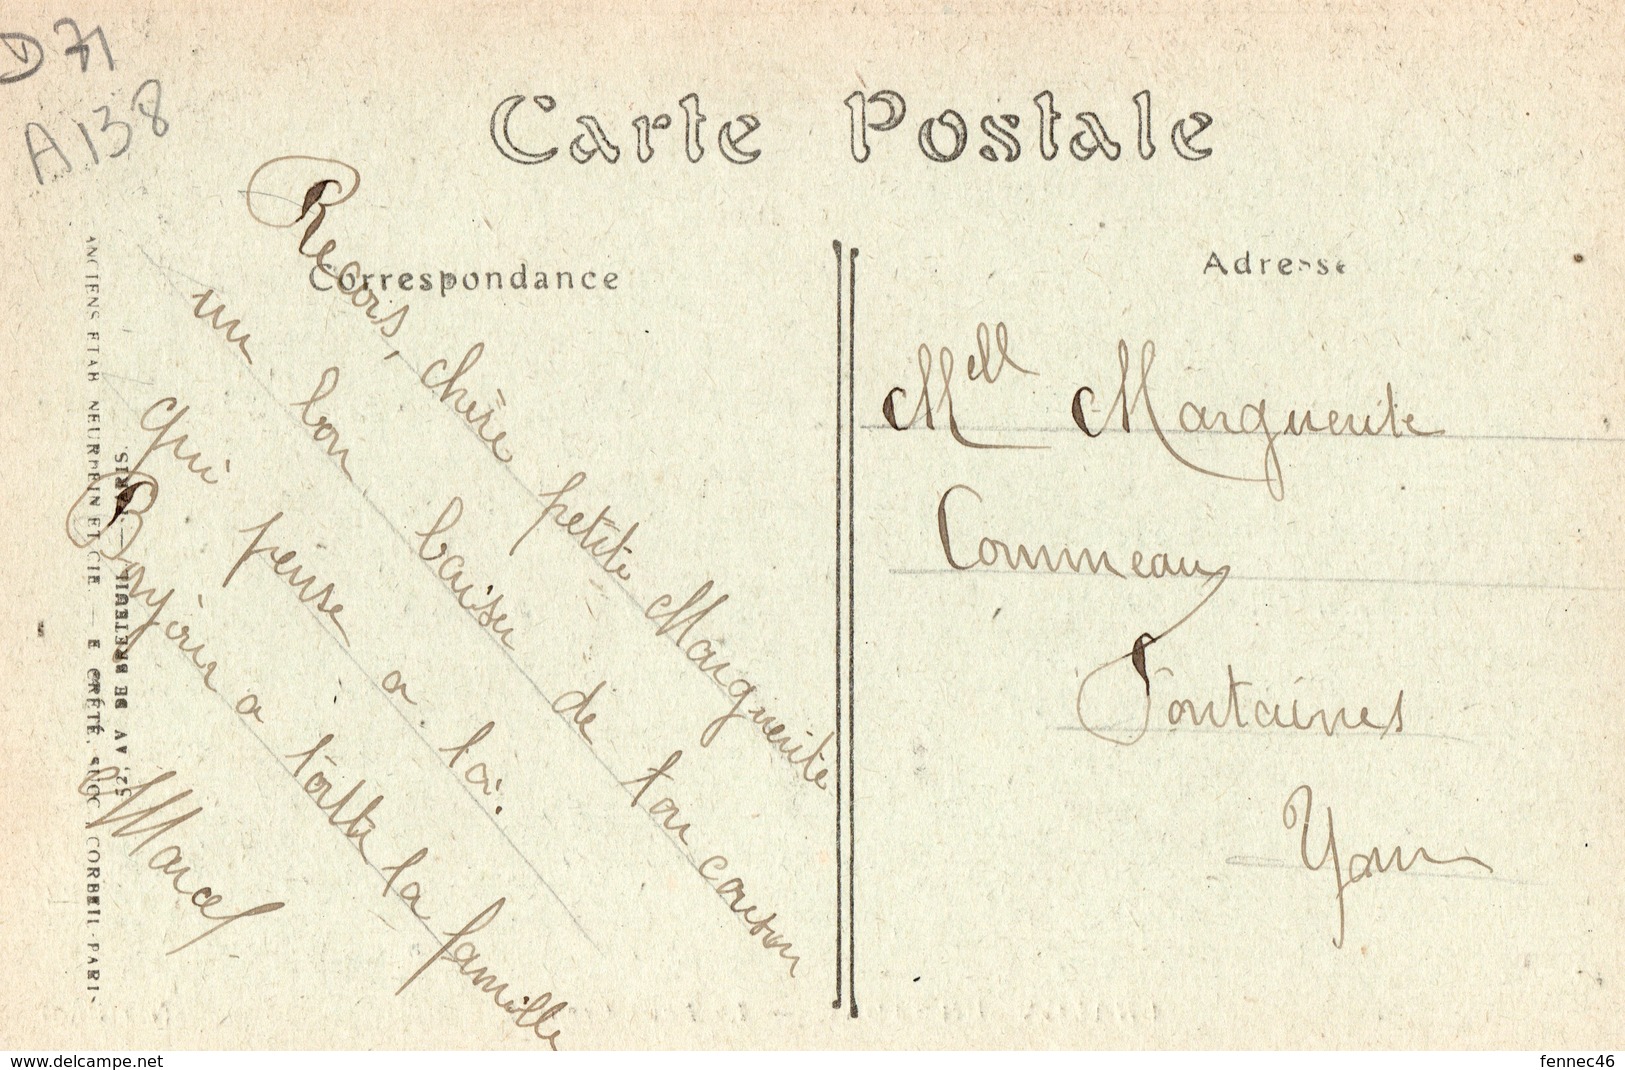 D 71
A 138
Carte Postale
Correspondance
Adresse
Recois, chère petite Marguerite
un bon baiser de ton cousin
qui pense a toi.
Bonjour a toutte la famille
Marcel
Mell Marguerite
Commeaux
Fontaines
Yonne
ANCIENS ETAB NEURDEIN ET CIE. — E. CRÉTÉ, SUCC CORBEIL-PARIS
52, AV. DE BRETEUIL — PARIS
www.delcampe.net
fennec46